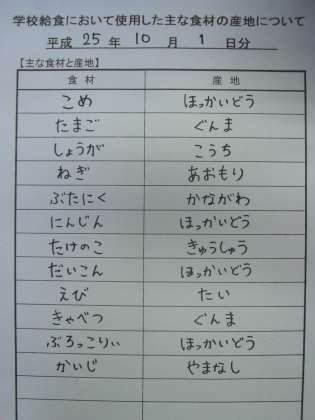 学校給食において使用した主な食材の産地について
平成 25 年 10 月 1 日分
【主な食材と産地】
食材 産地
こめ ほっかいどう
たまご ぐんま
しょうが こうち
ねぎ あおもり
ぶたにく かながわ
にんじん ほっかいどう
たけのこ きゅうしゅう
だいこん ほっかいどう
えび たい
きゃべつ ぐんま
ぶろっこりぃ ほっかいどう
かいじ やまなし